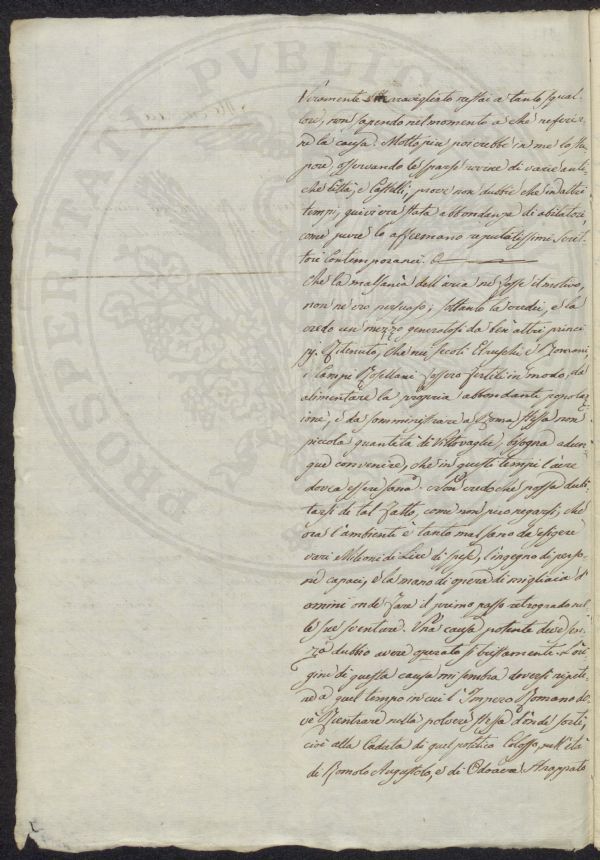 PROSPERITATI PVBLICAE
Veramente Maravigliato restai a tanto squal-
lore, non sapendo nel momento a che referir-
ne la causa. Molto più poi crebbe in me lo stu
pore, osservando le sparse rovine di varie anti
che Città, e Castelli, prove non dubbie che in altri
tempi, quivi era stata abbondanza di abitatori,
come pure lo affermano reputatissimi Scrit-
tori Contemporanei.
Che la malsania dell'aria ne fosse il motivo,
non ne ero persuaso; soltanto la credei, e la
credo un mezzo generatosi da ben altri princi
pj. Ritenuto, che nei secoli Etruschi, e Romani,
i Campi Rosellani fossero fertili in modo, da
alimentare la propria abbondante popolaz
ione, e da somministrare a Roma stessa non
piccola quantità di Vittovaglie, bisogna adun-
que convenire, che in questi tempi l'aere
dovea essere sano. Non credo che possa dubi
tarsi di tal fatto, come non può negarsi, che
ora l'ambiente è tanto malsano da esigere
vari Milioni di Lire di spese, l'ingegno di perso
ne capaci, e la mano di opera di migliaia d'
omini onde fare il primo passo retrogrado nel
le sue sventure. Una causa potente deve sen
za dubbio avere operato sì bassamente. L'ori
gini di questa causa mi sembra doversi ripete
re a quel tempo in cui l'Impero Romano do
vè Rientrare nella polvere stessa d'onde sortì,
cioè alla Caduta di quel politico Colosso, nell'età
di Romolo Augustolo, e di Odoacre. Strappato